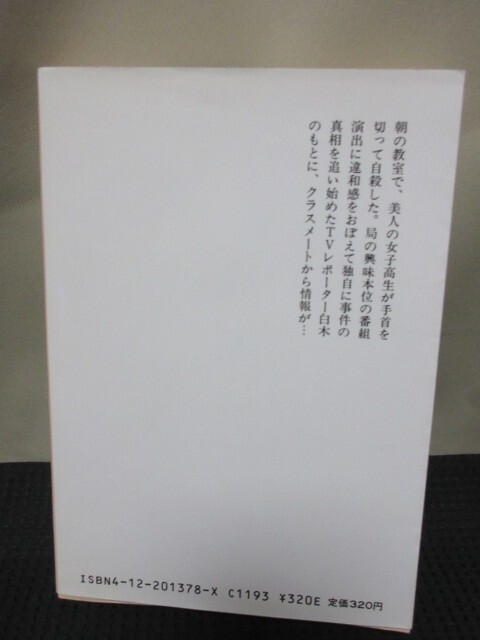 朝の教室で、美人の女子高生が手首を
切って自殺した。局の興味本位の番組
演出に違和感をおぼえて独自に事件の
真相を追い始めたTVレポーター白木
のもとに、クラスメートから情報が…
ISBN4-12-201378-X C1193 ¥320E 定価320円